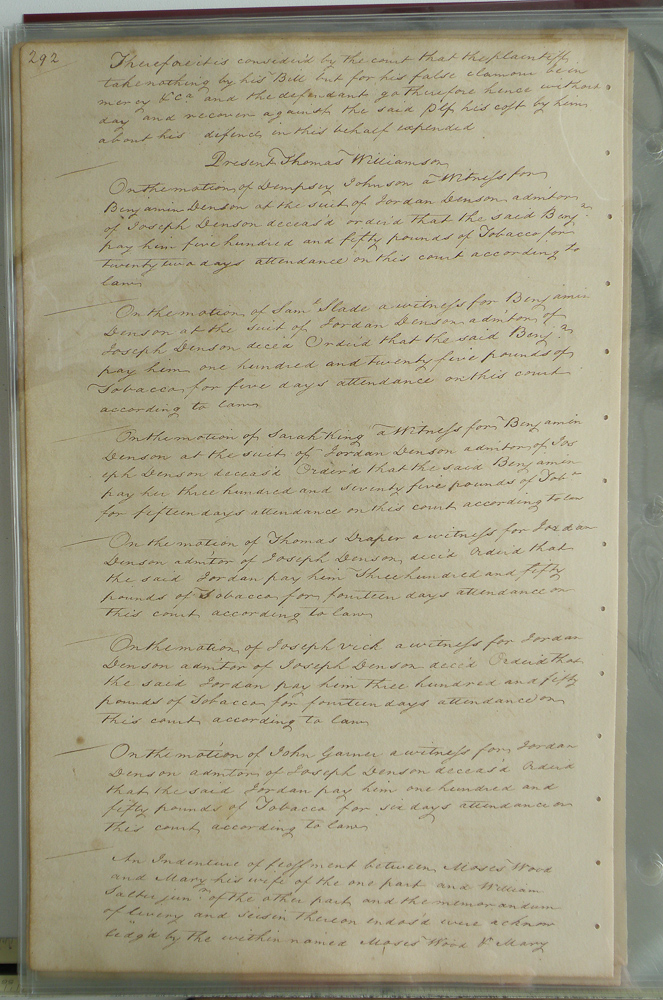 292
Therefore it is consider'd by the court that the plaintiff
take nothing by his Bill but for his false clamour be in
mercy &Ca and the defendant go therefore hence without
day and recover against the said Plf his cost by him
about his defence in this behalf expended
Present Thomas Williamson
On the motion of Dempsey Johnson a Witness for
Benjamin Denson at the suit of Jordan Denson admitor
of Joseph Denson deceas'd order'd that the said Benja
pay him five hundred and fifty pounds of Tobacco for
twenty two days attendance on this court according to
law
On the motion of Saml Slade a witness for Benjamin
Denson at the suit of Jordan Denson admitor of
Joseph Denson decec'd Order'd that the said Benja
pay him one hundred and twenty five pounds of
Tobacco for five days attendance on this court
according to law
On the motion of Sarah King a Witness for Benjamin
Denson at the suit of Jordan Denson admitor of Jos
eph Denson deceas'd Order'd that the said Benjamin
pay her three hundred and seventy five pounds of Tobo
for fifteen days attendance on this court according to law
On the motion of Thomas Draper a witness for Jordan
Denson admitor of Joseph Denson dece'd Orderd that
the said Jordan pay him Three hundred and fifty
pounds of Tobacco for fourteen days attendance on
this court according to law
On the motion of Joseph vick a witness for Jordan
Denson admitor of Joseph Denson dece'd Order'd that
the said Jordan pay him three hundred and fifty
pounds of Tobacco for fourteen days attendance on
this court according to law
On the motion of John Garner a witness for Jordan
Denson admitor of Joseph Denson deceas'd Orderd
that the said Jordan pay him one hundred and
fifty pounds of Tobacco for six days attendance on
this court according to law
An Indenture of feoffment between Moses Wood
and Mary his wife of the one part and William
Salter junr of the other part and the memorandum
of livery and seisin thereon endos'd were acknow
ledg'd by the within named Moses Wood & Mary